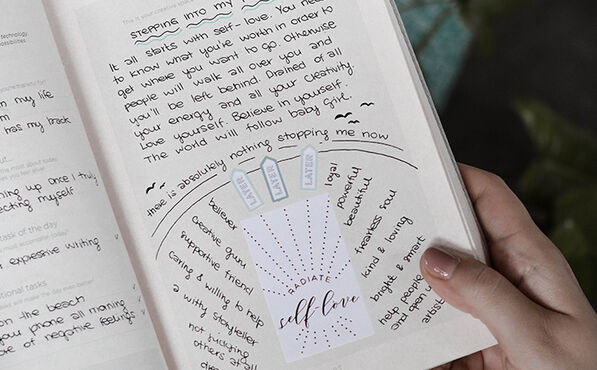 technology
possibilities
n my life
n has my track
ing up once I truly
ecting myself
task of the day
r expressive writing
tional tasks
on the beach
your phone all morning
of negative feelings
This is your creative space
STEPPING INTO MY
It all starts with self-love. You need
to know what you're worth in order to
get where you want to go. Otherwise
people will walk all over you and
you'll be left behind. Drained of all
your energy and all your creativity.
Love yourself. Believe in yourself.
The world will follow baby girl.
there is absolutely nothing stopping me now
LATER
LATER
LATER
believer
creative guru
supportive friend
caring & willing to help
a witty storyteller
not judging
others at all
RADIATE
self-love
loyal
powerful
beautiful
fearless soul
kind & loving
bright & smart
help people
and open